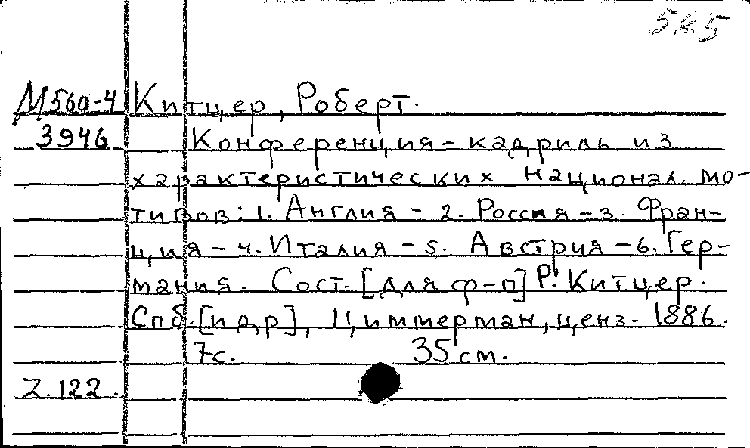 585
М560-4 Китцер, Роберт.
3946 Конференция - кадриль из
характеристических национал. мо-
тивов: 1. Англия - 2. Россия - 3. Фран-
ция - 4. Италия - 5. Австрия - 6. Гер-
мания. Сост. [для ф-п] Р. Китцер.
Спб. [и др], Циммерман, ценз. 1886.
7с. 35 см.
Z.122.